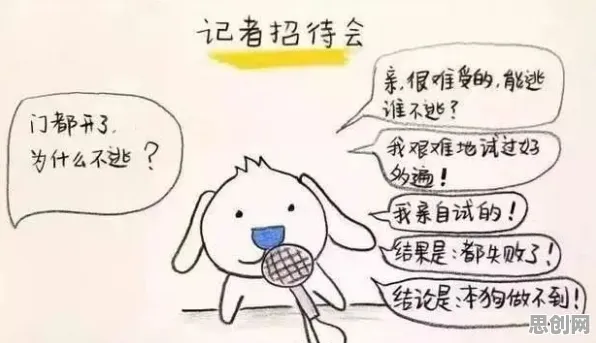 记者招待会
门都开了，
为什么不逃？
亲，很难受的，能逃
谁不逃？
我艰难地试过好
多遍！
我亲自试的！
结果是：都失败了！
结论是：本狗做不到！
思创网